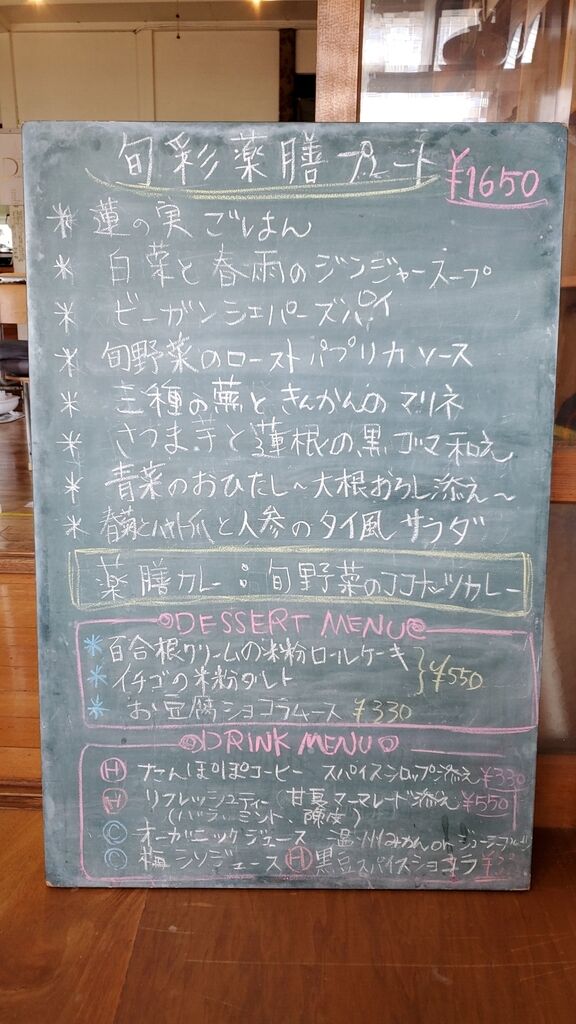 旬彩薬膳プレート ¥1650
* 蓮の実ごはん
* 白菜と春雨のジンジャースープ
* ビーガンシェパーズパイ
* 旬野菜のロースト パプリカソース
* 三種の蕪ときんかんのマリネ
* さつま芋と蓮根の黒ゴマ和え
* 青菜のおひたし〜大根おろし添え〜
* 春菊とハヤト瓜と人参のタイ風サラダ
薬膳カレー:旬野菜のココナッツカレー
DESSERT MENU
* 百合根クリームの米粉ロールケーキ
* イチゴの米粉タルト ¥550
* お豆腐ショコラムース ¥330
DRINK MENU
Ⓗ たんぽぽコーヒー スパイスシロップ添え ¥330
Ⓗ リフレッシュティー 甘夏マーマレード添え ¥550
(バラ、ミント、陳皮)
Ⓒ オーガニックジュース 温州みかん or
Ⓒ 梅シソジュース Ⓗ 黒豆スパイスショコラ